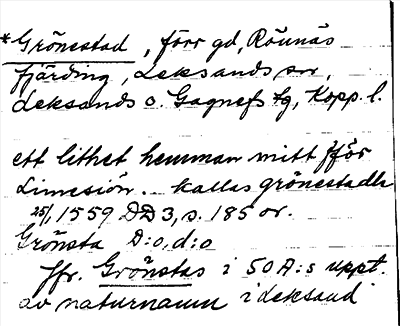 *Grönestad, förr gd, Röunäs
fjärding, Leksands sn,
Leksands o. Gagnefs tg, Kopp. l.
ett lithet hemman mitt fför
Limesiön. kallas grönestadh
25/1 1559 DD3, s. 185 or.
Grönsta D:o, d:o
Jfr. Grönstas i 50A:s uppt.
av naturnamn i Leksand